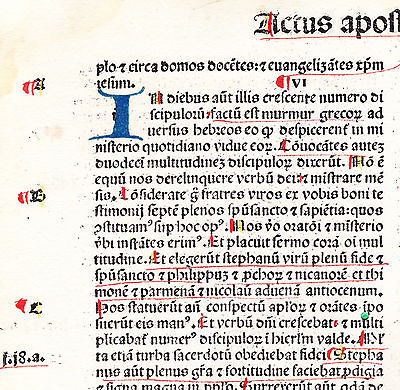 Actus apost
plo ⁊ circa domos docẽtes: ⁊ euangelizãtes xp̃m
iesum. VI
A
IN diebus aũt illis crescente numero di
scipuloruȝ factũ est murmur grecoꝝ ad
uersus hebreos eo ꝙ despicerent̃ in mi
nisterio quotidiano vidue eoꝝ. Cõuocãtes autez
duodeci multitudineȝ discipuloꝝ dixerũt. Nõ ẽ
equũ nos derelinquere verbũ dei: ⁊ mistrare mẽ
B
sis. Cõsiderate g̃ fratres viros ex vobis boni te
stimonij septẽ plenos spũsancto ⁊ sapiẽtia: quos
ꝯstituamꝰ suꝑ hoc opꝰ. Nos v̾o oratõi ⁊ misterio
v̾bi instãtes erimꝰ. Et placuit sermo corã oi mul
titudine. Et elegerũt stephanũ virũ plenũ fide ⁊
spũsancto ⁊ philippuȝ ⁊ ꝓchoꝝ ⁊ nicanorẽ et thi
monẽ ⁊ parmenã ⁊ nicolaũ aduenã antiocenum.
C
Hos statuerũt añ conspectũ apl̾oꝝ ⁊ orãtes ipo
suerũt eis manꝰ. Et verbũ dñi crescebat ⁊ multi
plicabat̃ numerꝰ discipuloꝝ i hierlm̃ valde. M
f.18.a.
ta etiã turba sacerdotũ obediebat fidei. Stepha
nus aũt plenus gr̃a ⁊ fortitudine faciebat ꝓdigia
⁊ signa magna in pp̃lo. Surrexerũt aũt qdã de